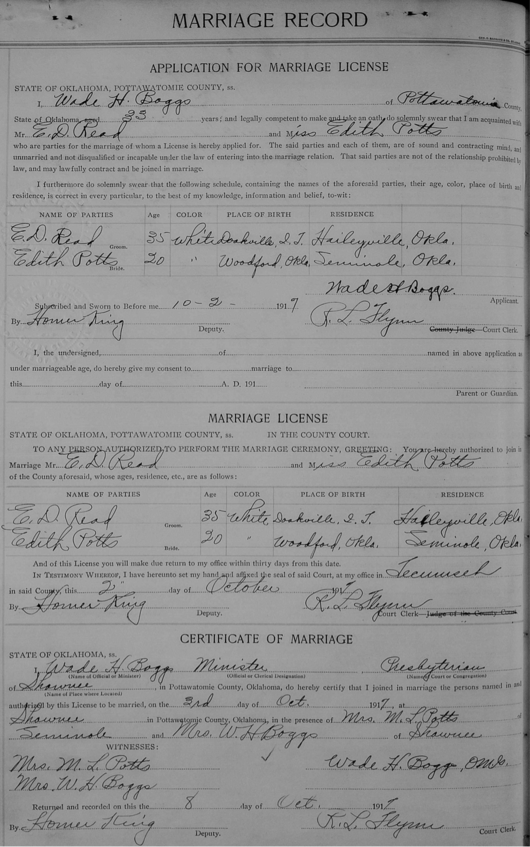 MARRIAGE RECORD
APPLICATION FOR MARRIAGE LICENSE
STATE OF OKLAHOMA, POTTAWATOMIE COUNTY, ss.
I, Wade H. Boggs of Pottawatomie County
State of Oklahoma, and 33 years; and legally competent to make and take an oath, do solemnly swear that I am acquainted with
Mr. E. D. Read and Miss Edith Potts
who are parties for the marriage of whom a License is hereby applied for. The said parties and each of them, are of sound and contracting mind, and
unmarried and not disqualified or incapable under the law of entering into the marriage relation. That said parties are not of the relationship prohibited by
law, and may lawfully contract and be joined in marriage.
I furthermore do solemnly swear that the following schedule, containing the names of the aforesaid parties, their age, color, place of birth and
residence, is correct in every particular, to the best of my knowledge, information and belief, to-wit:
NAME OF PARTIES Age COLOR PLACE OF BIRTH RESIDENCE
E. D. Read Groom. 35 White Doakville, I. T. Haileyville, Okla.
Edith Potts Bride. 20 " Woodford, Okla. Seminole, Okla.
Wade H Boggs.
Subscribed and Sworn to Before me 10-2- 1917 Applicant.
By Homer King Deputy. R. L. Flynn County Judge Court Clerk.
I, the undersigned, of named in above application
under marriageable age, do hereby give my consent to marriage to
this day of A. D. 191
Parent or Guardian.
MARRIAGE LICENSE
STATE OF OKLAHOMA, POTTAWATOMIE COUNTY, ss. IN THE COUNTY COURT.
TO ANY PERSON AUTHORIZED TO PERFORM THE MARRIAGE CEREMONY, GREETING: You are hereby authorized to join in
Marriage Mr. E. D. Read and Miss Edith Potts
of the County aforesaid, whose ages, residence, etc., are as follows:
NAME OF PARTIES Age COLOR PLACE OF BIRTH RESIDENCE
E. D. Read Groom. 35 White, Doakville, I. T. Haileyville, Okla
Edith Potts Bride. 20 " Woodford, Okla. Seminole, Okla.
And of this License you will make due return to my office within thirty days from this date.
IN TESTIMONY WHEREOF, I have hereunto set my hand and affixed the seal of said Court, at my office in Tecumseh
in said County, this 2 day of October 1917
By Homer King Deputy. R. L. Flynn Court Clerk Judge of the County Court
CERTIFICATE OF MARRIAGE
STATE OF OKLAHOMA,
I, Wade H. Boggs Minister Presbyterian
(Name of Official or Minister) (Official or Clerical Designation) (Name of Court or Congregation)
of Shawnee, in Pottawatomie County, Oklahoma, do hereby certify that I joined in marriage the persons named in and
(Name of Place where Located)
authorized by this License to be married, on the 3rd day of Oct. 1917, at
Shawnee in Pottawatomie County, Oklahoma, in the presence of Mrs. M. L. Potts
Seminole and Mrs. W. H. Boggs of Shawnee
WITNESSES:
Mrs. M. L. Potts Wade H. Boggs,
Mrs. W. H. Boggs
Returned and recorded on this the 8 day of Oct. 1917
By Homer King Deputy. R. L. Flynn Court Clerk.